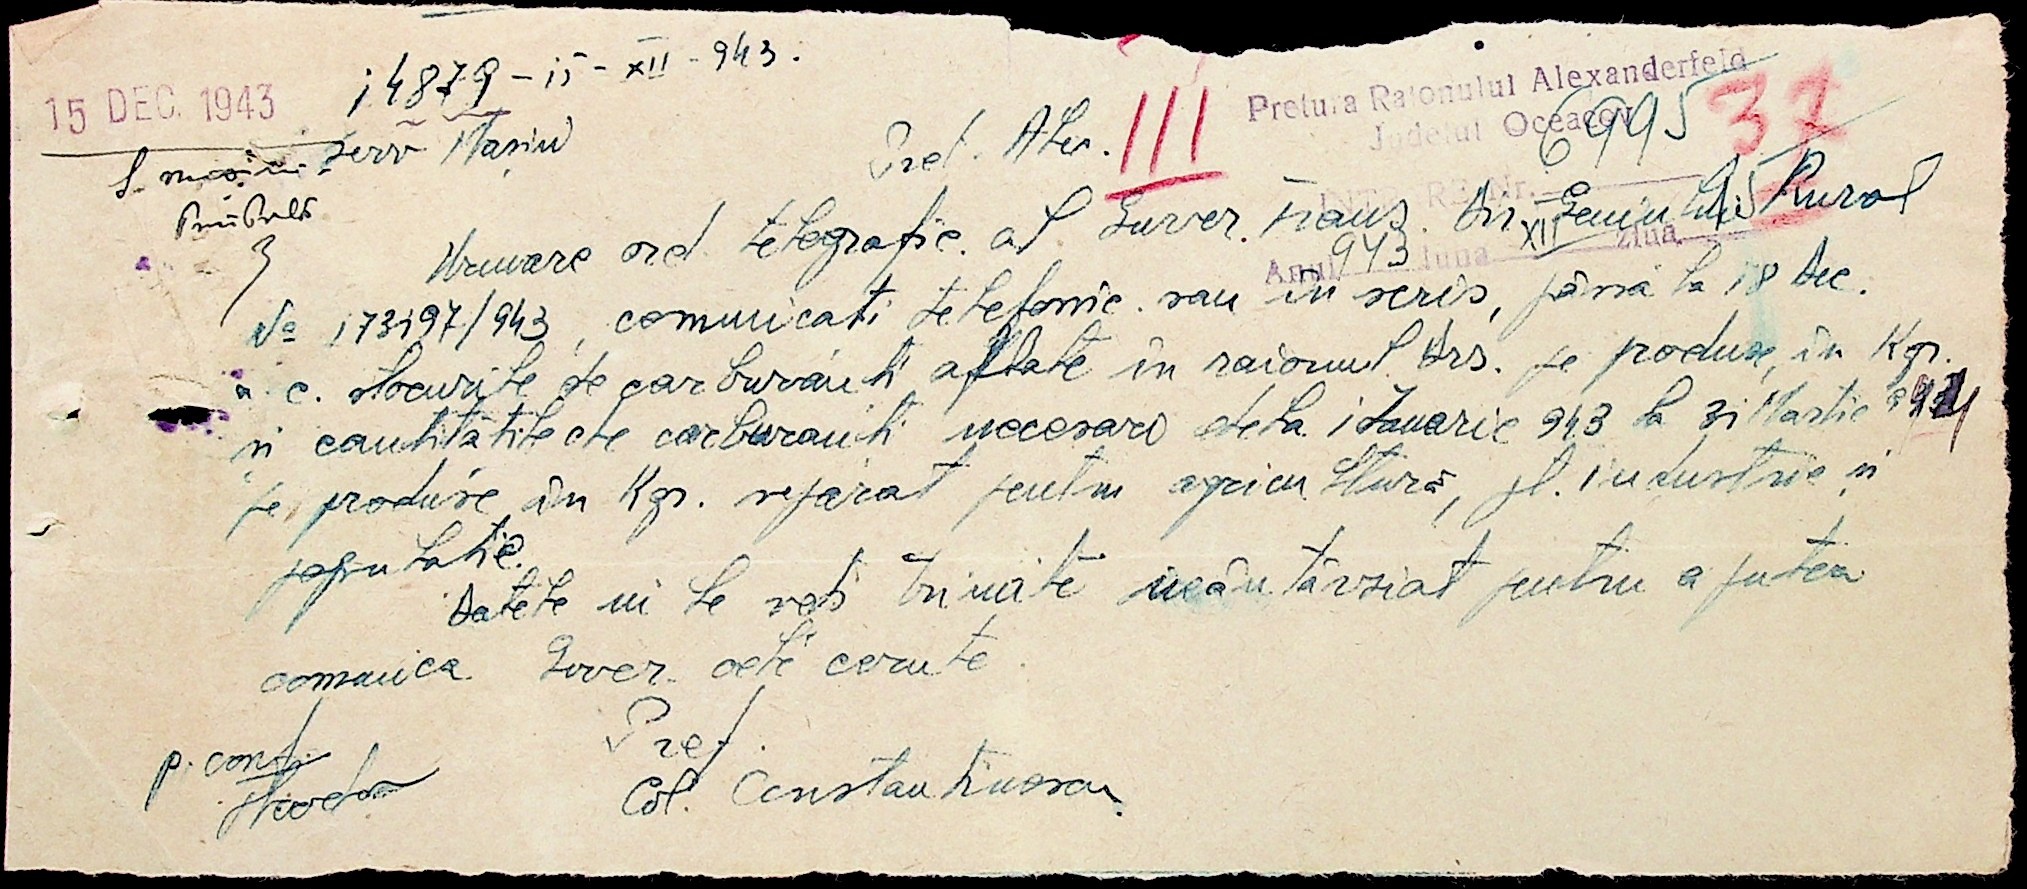 14879 - 15 - XII - 943.
15 DEC. 1943
Serv
Pret. Alex. III
Pretura Raionului Alexanderfeld
Judetul Oceacov
6995
37
INTR. REG. Nr.
Anul 943 luna XII ziua 15
Urmare ord. telegrafic al Guver. Trans. Dir Geniului Rural
No 173197/943, comunicati telefonic sau în scris, pâna la 18 Dec.
a. c. stocurile de carburanti aflate în raionul Dvs. pe produse, în Kgr.
si cantitatile de carburanti necesare dela 1 Ianuarie 943 la 31 Martie
pe produse în Kgr. separat pentru agricultură, pt. industrie si
populatie.
Datele ni le veti trimite neântârziat pentru a putea
comunica Guver. cele cerute.
Pref.
Col. Constantinescu
p. conf.